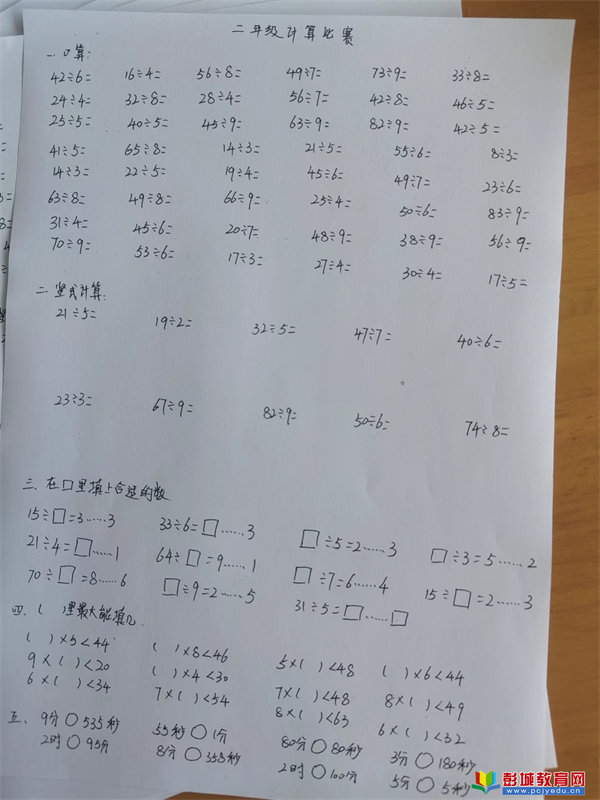 二年级计算比赛
一.口算:
42÷6= 16÷4= 56÷8= 49÷7= 73÷9= 33÷8=
24÷4= 32÷8= 28÷4= 56÷7= 42÷8= 46÷5=
25÷5= 40÷5= 45÷9= 63÷9= 82÷9= 42÷5=
41÷5= 65÷8= 14÷3= 21÷5= 55÷6= 8÷3=
14÷3= 22÷5= 19÷4= 45÷6= 49÷7= 23÷6=
63÷8= 49÷8= 66÷9= 25÷4= 50÷6= 83÷9=
31÷4= 45÷6= 20÷7= 48÷9= 38÷9= 56÷9=
70÷9= 53÷6= 17÷3= 27÷4= 30÷4= 17÷5=
二.竖式计算:
21÷5= 19÷2= 32÷5= 47÷7= 40÷6=
23÷3= 67÷9= 82÷9= 50÷6= 74÷8=
三、在口里填上合适的数.
15÷□=3……3 33÷6=□……3 □÷5=2……3 □÷3=5……2
21÷4=□……1 64÷□=9……1 □÷7=6……4 15÷□=2……3
70÷□=8……6 □÷9=2……5 31÷5=□……□
四.( )里最大能填几.
( )×5<44 ( )×8<46 5×( )<48 ( )×6<44
9×( )<20 ( )×4<30 7×( )<48 8×( )<49
6×( )<34 7×( )<54 8×( )<63 6×( )<32
五、9分○535秒 55秒○1分 80分○80秒 3分○180秒
2时○95分 8分○358秒 2时○100分 5分○5秒
彭城教育网
www.pcjyedu.cn